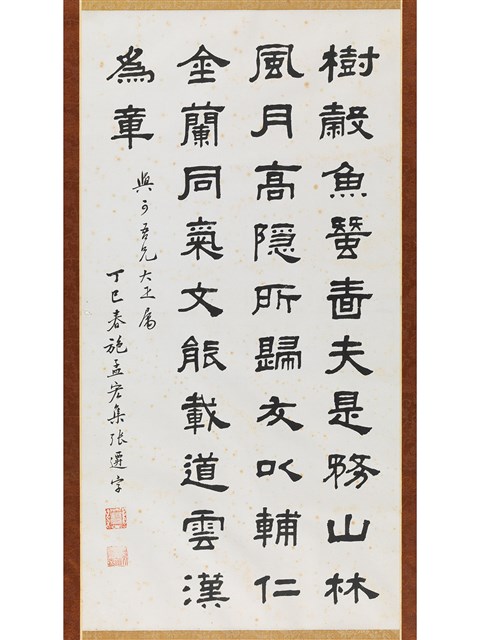 樹穀魚蠶嗇夫是務山林
風月高隱所歸友以輔仁
金蘭同氣文能載道雲漢
為章
與可吾兄大正屬
丁巳春施孟宏集張遷字